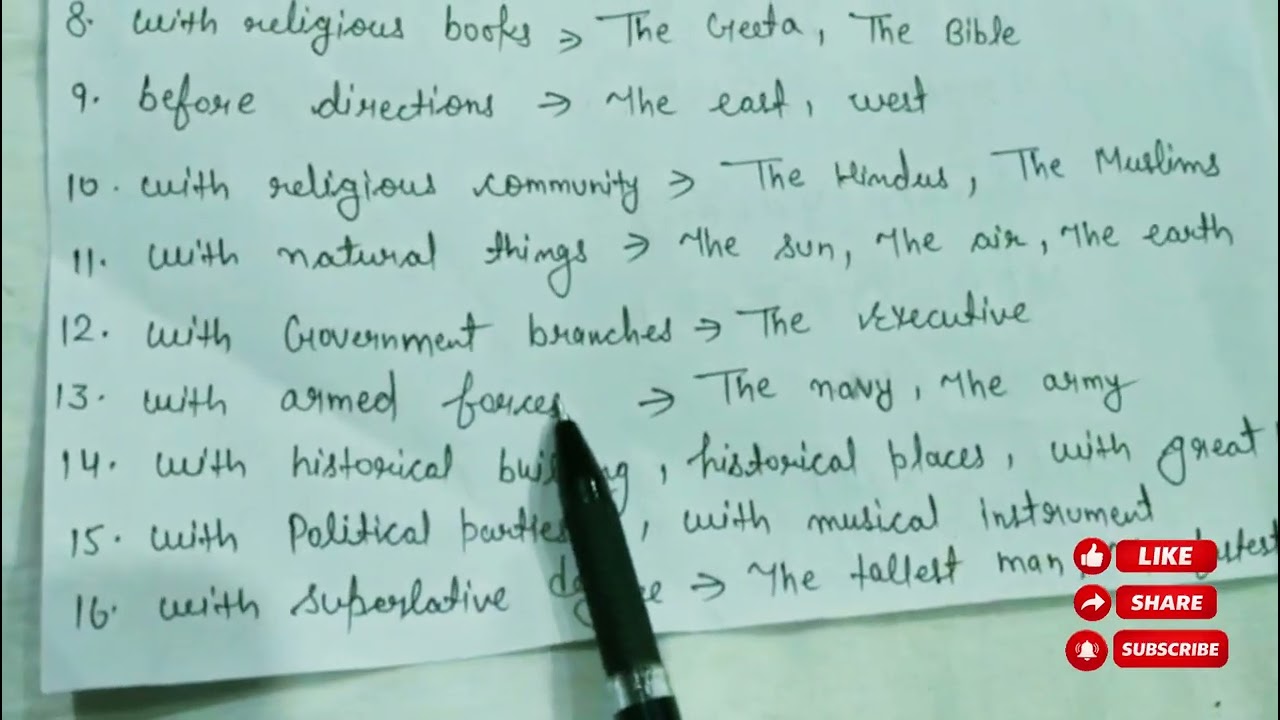 8. with religious books → The Geeta, The Bible
9. before directions → The east, west
10. with religious community → The Hindus, The Muslims
11. with natural things → The sun, The air, The earth
12. with Government branches → The Executive
13. with armed forces → The navy, The army
14. with historical building, historical places, with great
15. with Political parties, with musical instrument
16. with superlative degree → The tallest man,
LIKE
SHARE
SUBSCRIBE